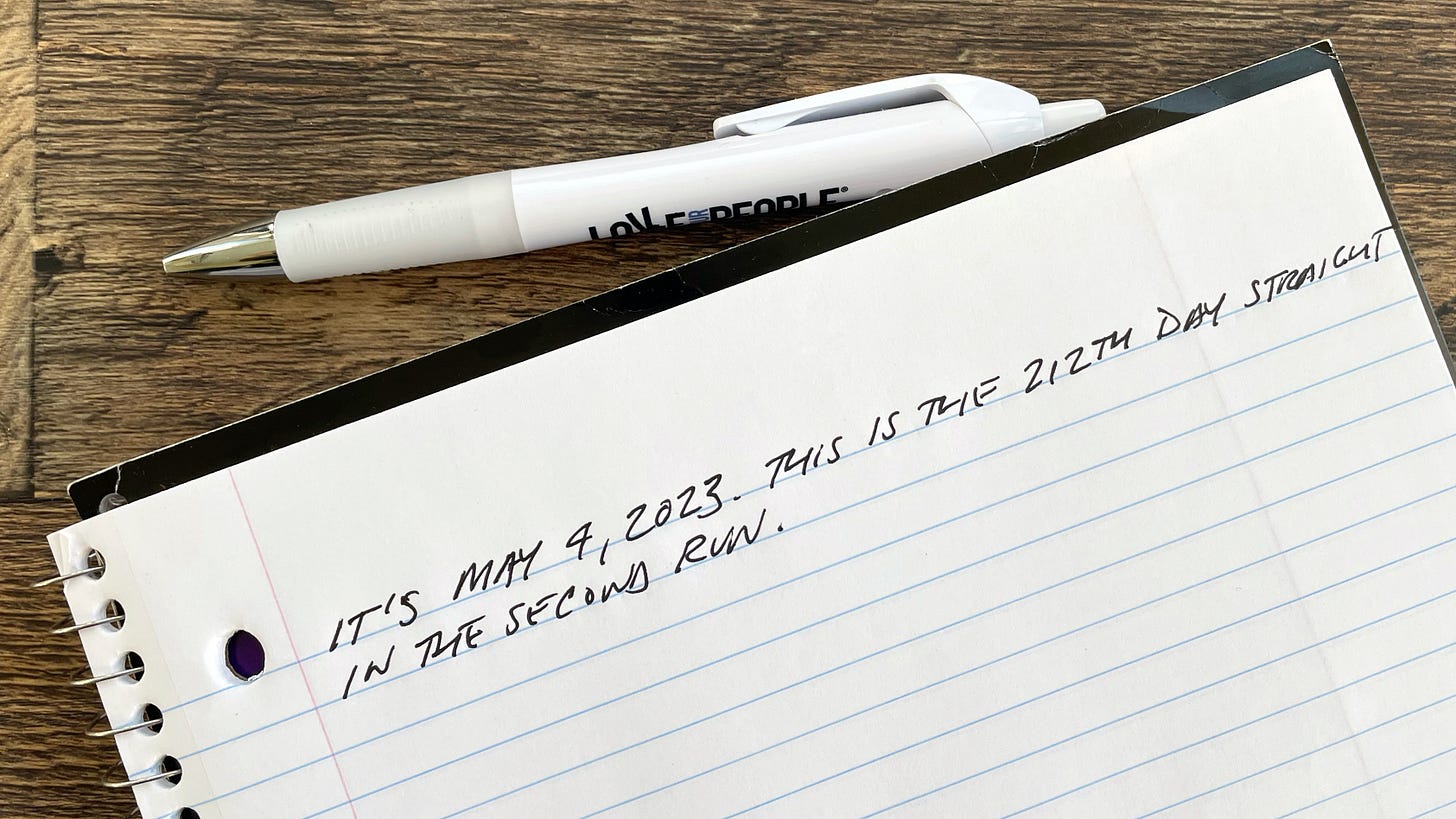 LOVE UR PEOPLE®
IT'S MAY 4, 2023. THIS IS THE 212TH DAY STRAIGHT
IN THE SECOND RUN.